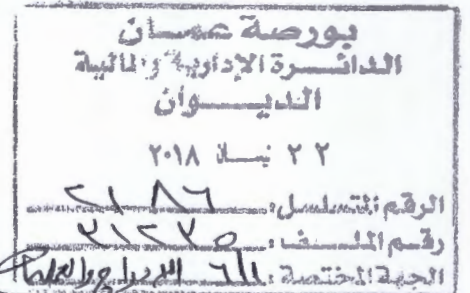 بورصة عمان
الدائرة الإدارية والمالية
الديوان
٢٢ نيسان ٢٠١٨
الرقم المتسلسل: ٢١٨٦
رقم الملف: ٣١٢٣٥
الجهة المختصة: ٦١١ الإدراج والعمليات